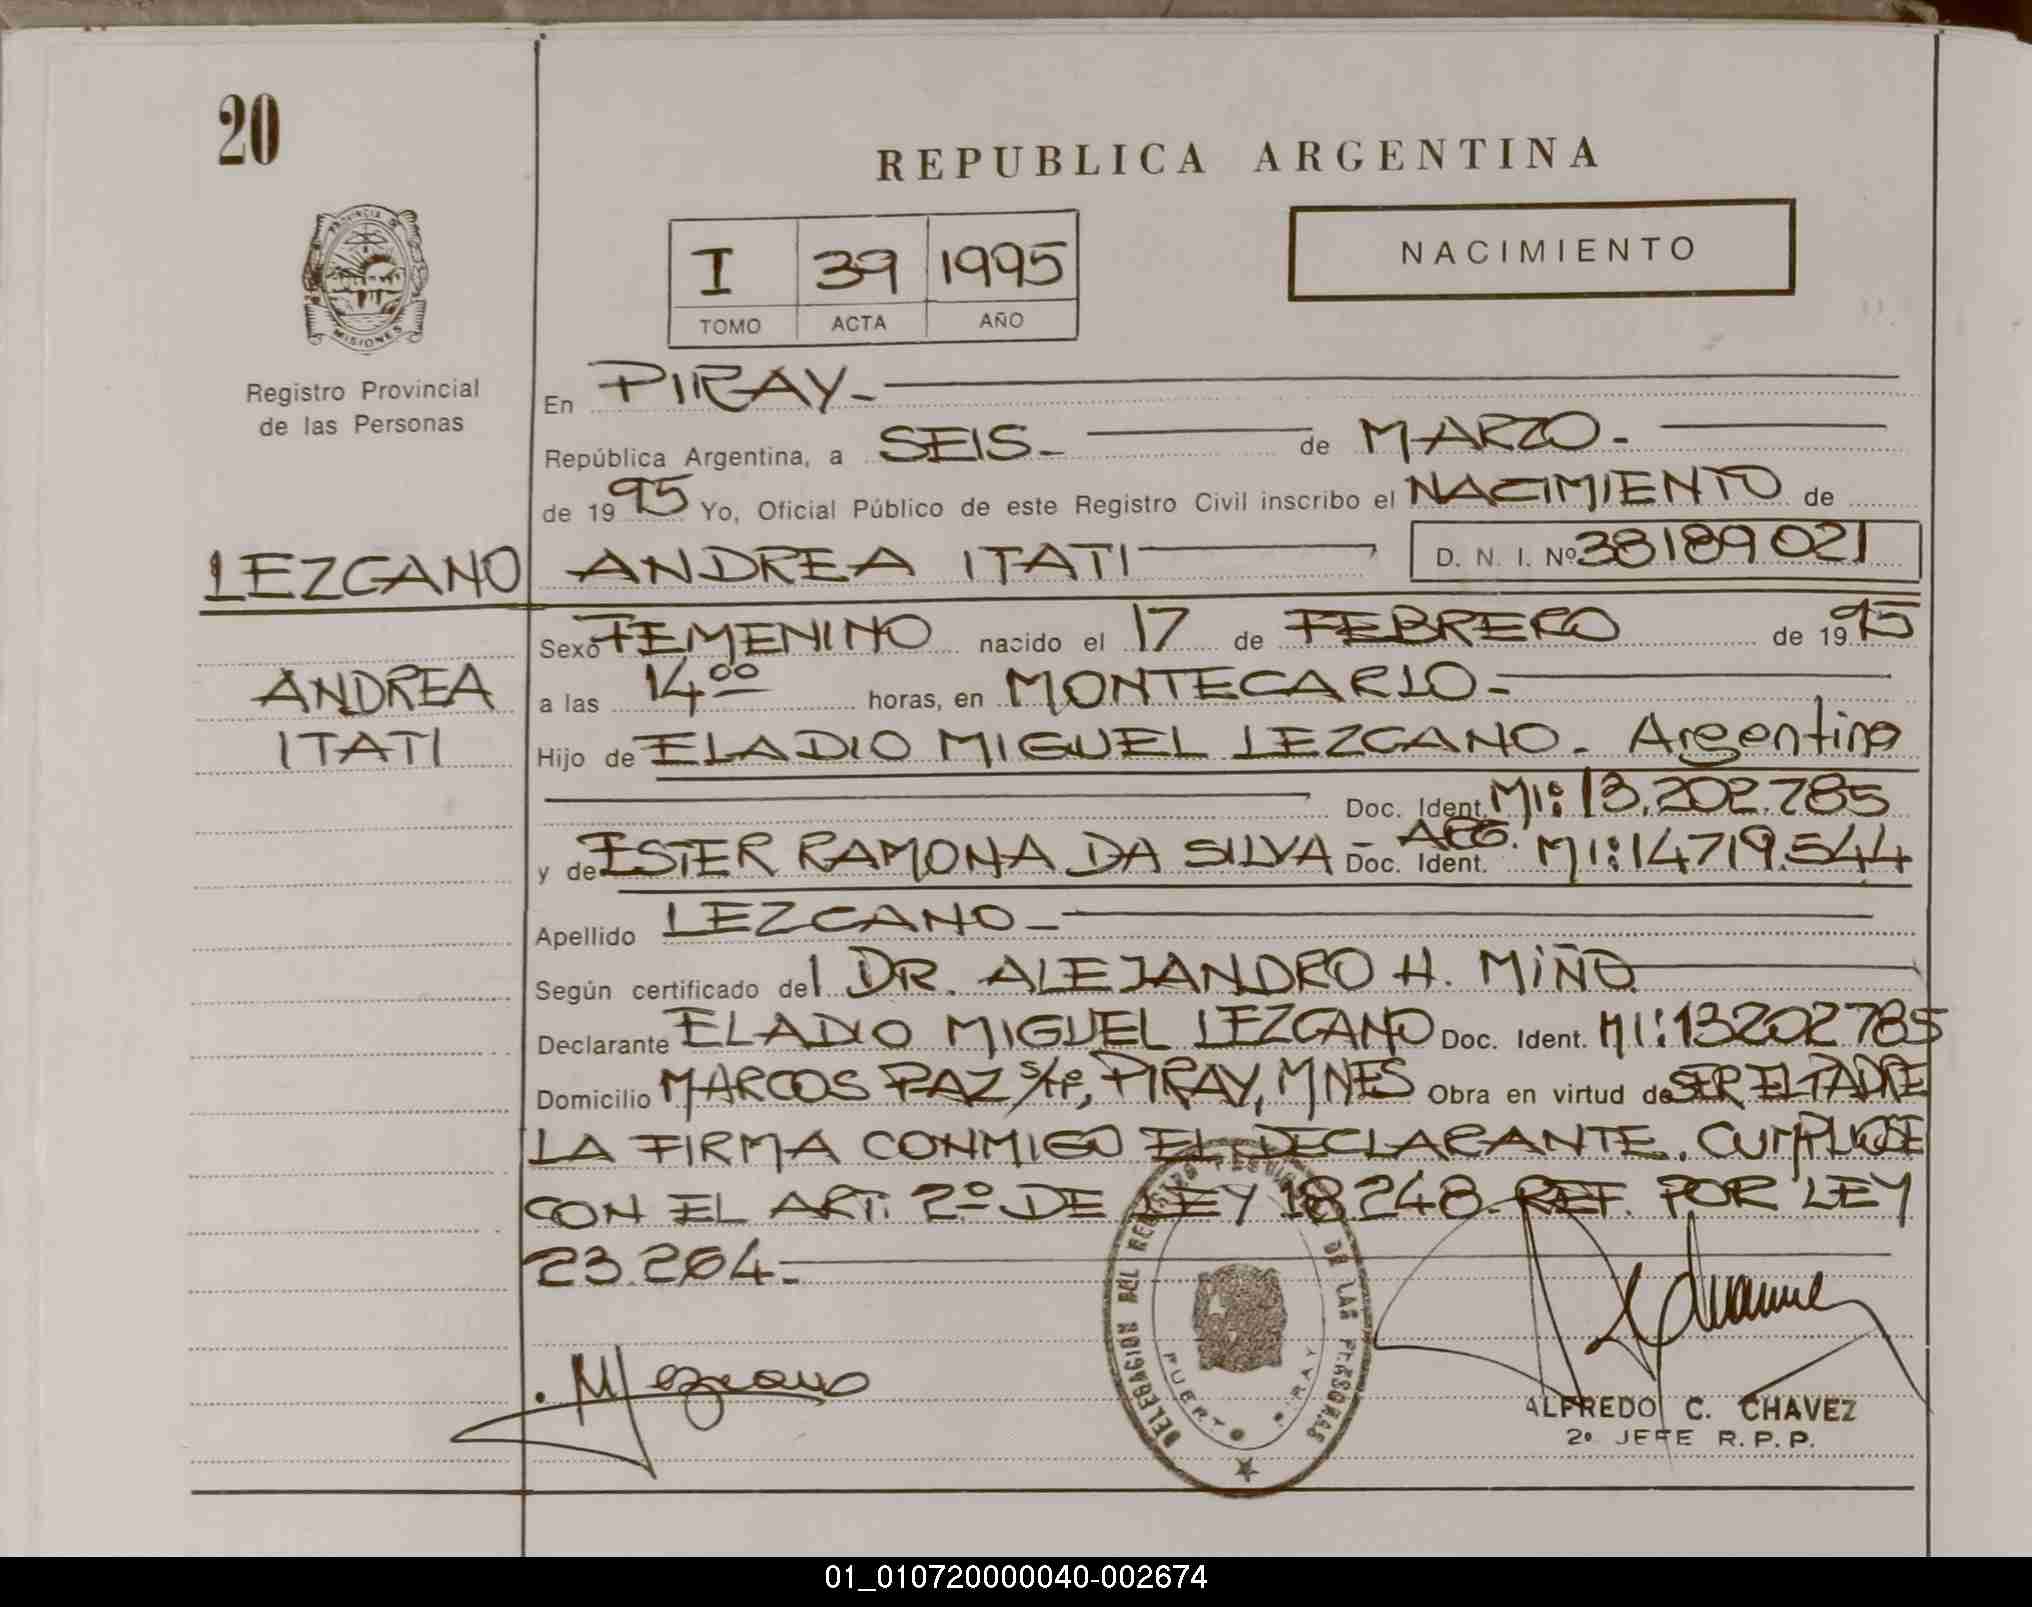 20
REPUBLICA ARGENTINA
I 39 1995
TOMO ACTA AÑO
NACIMIENTO
PROVINCIA DE
MISIONES
Registro Provincial
de las Personas
En PIRAY-
República Argentina, a SEIS- de MARZO-
de 1995 Yo, Oficial Público de este Registro Civil inscribo el NACIMIENTO de
LEZCANO ANDREA ITATI D. N. I. Nº 38189021
Sexo FEMENINO nacido el 17 de FEBRERO de 1995
ANDREA
ITATI
a las 14ºº horas, en MONTECARLO-
Hijo de ELADIO MIGUEL LEZCANO- Argentino
Doc. Ident. MI: 13.202.785
y de ESTER RAMONA DA SILVA- ARG. Doc. Ident. MI: 14719.544
Apellido LEZCANO-
Según certificado del DR. ALEJANDRO H. MIÑO
Declarante ELADIO MIGUEL LEZCANO Doc. Ident. MI: 13202785
Domicilio MARCOS PAZ s/nº, PIRAY, MNES Obra en virtud de SER EL PADRE
LA FIRMA CONMIGO EL DECLARANTE. CUMPLIOSE
CON EL ART. 2º DE LEY 18.248- REF. POR LEY
23.264-
DELEGACION DEL REGISTRO DE LAS PERSONAS
PUERTO PIRAY
M Lezcano
ALFREDO C. CHAVEZ
2º JEFE R.P.P.
01_010720000040-002674